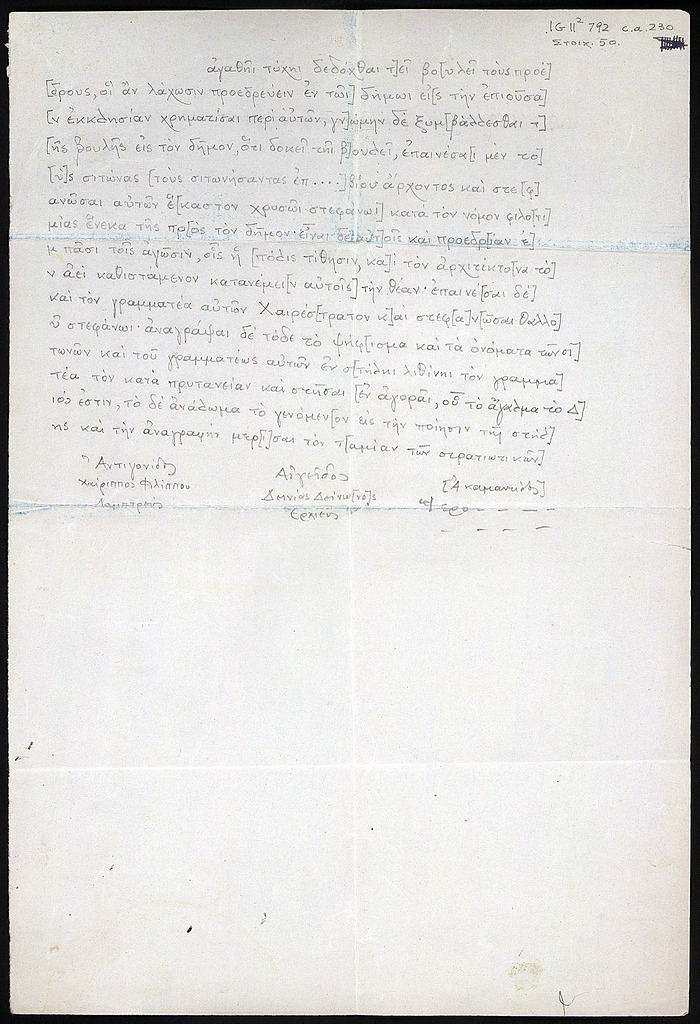 IG II² 792 c.a. 230
Στοιχ. 50.
ἀγαθῆι τύχηι δεδόχθαι τ]εῖ βο[υλεῖ τοὺς προέ]
[δρους, οἳ ἂν λάχωσιν προεδρεύειν ἐν τῶι] δήμωι εἰ[ς τὴν ἐπιοῦσα]
[ν ἐκκλησίαν χρηματίσαι περὶ αὐτῶν, γν]ώμην δὲ ξυμ[βάλλεσθαι τ]
[ῆς βουλῆς εἰς τὸν δῆμον, ὅτι δοκεῖ τῆι β]ουλεῖ, ἐπαινέσα[ι μὲν το]
[ὺ]ς σιτώνας [τοὺς σιτωνήσαντας ἐπ ....]βίου ἄρχοντος καὶ στε[φ]
ανῶσαι αὐτῶν ἕ[καστον χρυσῶι στεφάνωι] κατὰ τὸν νόμον φιλο[τι]
μίας ἕνεκα τῆς πρ[ὸς τὸν δῆμον· εἶναι δὲ αὐτ]οῖς καὶ προεδρ[ίαν ἐ]
μ πᾶσι τοῖς ἀγῶσιν, οἷς ἡ [πόλις τίθησιν, κα]ὶ τὸν ἀρχιτέκτο[να τὸ]
ν ἀεὶ καθιστάμενον κατανέμει[ν αὐτοῖς] τὴν θέαν· ἐπαινέ[σαι δὲ]
καὶ τὸν γραμματέα αὐτῶν Χαιρέσ[τρατον κ]αὶ στεφ[α]ν[ῶσαι θαλλο]
ῦ στεφάνωι· ἀναγράψαι δὲ τόδε τὸ ψήφ[ισμα καὶ τὰ ὀνόματα τῶν σι]
τωνῶν καὶ τοῦ γραμματέως αὐτῶν ἐν σ[τήλει λιθίνηι τὸν γραμμα]
τέα τὸν κατὰ πρυτανείαν καὶ στῆσαι [ἐν ἀγορᾶι, οὗ τὸ ἄγαλμα τὸ Δ]
ιός ἐστιν, τὸ δὲ ἀνάλωμα τὸ γενόμεν[ον εἰς τὴν ποίησιν τῆς στήλ]
ης καὶ τὴν ἀναγραφὴν μερ[ί]σαι τὸν τ[αμίαν τῶν στρατιωτικῶν]
Ἀντιγονίδος
Αἰγεῖδος
[Ἀκαμαντίδος]
Χαίριππος Φιλίππου
Δεινίας Δείνω[νο]ς
Ἱερο - - - -
Λαμπτρεύς
Ἐρχιεύς
- - - -